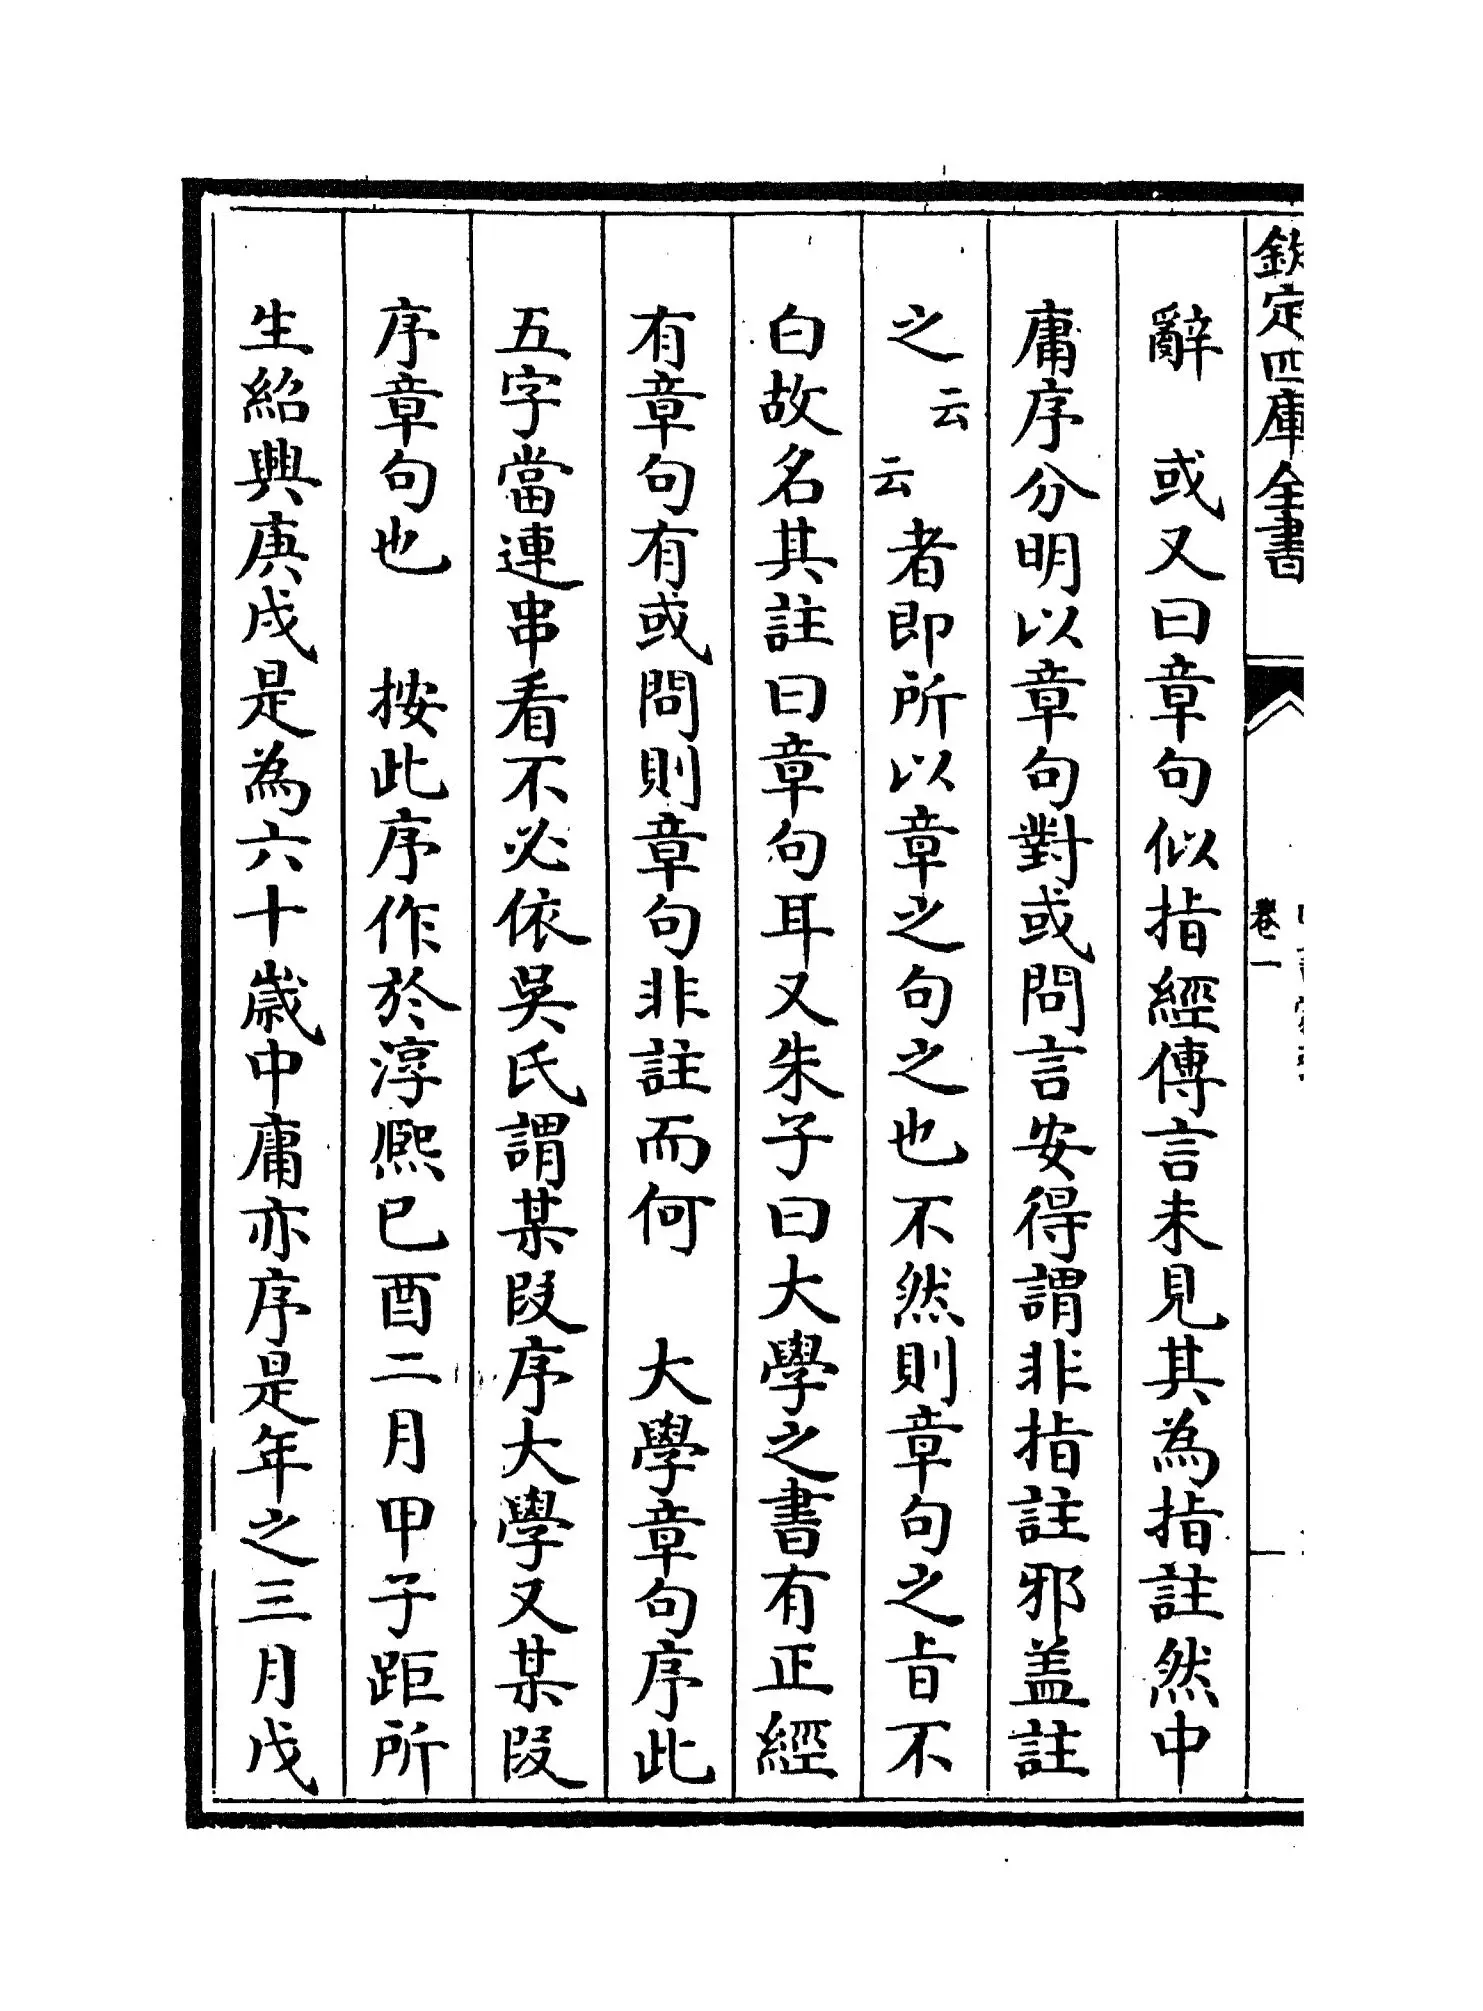 欽定四庫全書
卷一
辭　或又曰章句似指經傳言未見其為指註然中
庸序分明以章句對或問言安得謂非指註邪盖註
之云云者即所以章之句之也不然則章句之旨不
白故名其註曰章句耳又朱子曰大學之書有正經
有章句有或問則章句非註而何　大學章句序此
五字當連串看不必依吳氏謂某段序大學又某段
序章句也　按此序作於淳熈已酉二月甲子距所
生紹興庚戌是為六十歲中庸亦序是年之三月戊